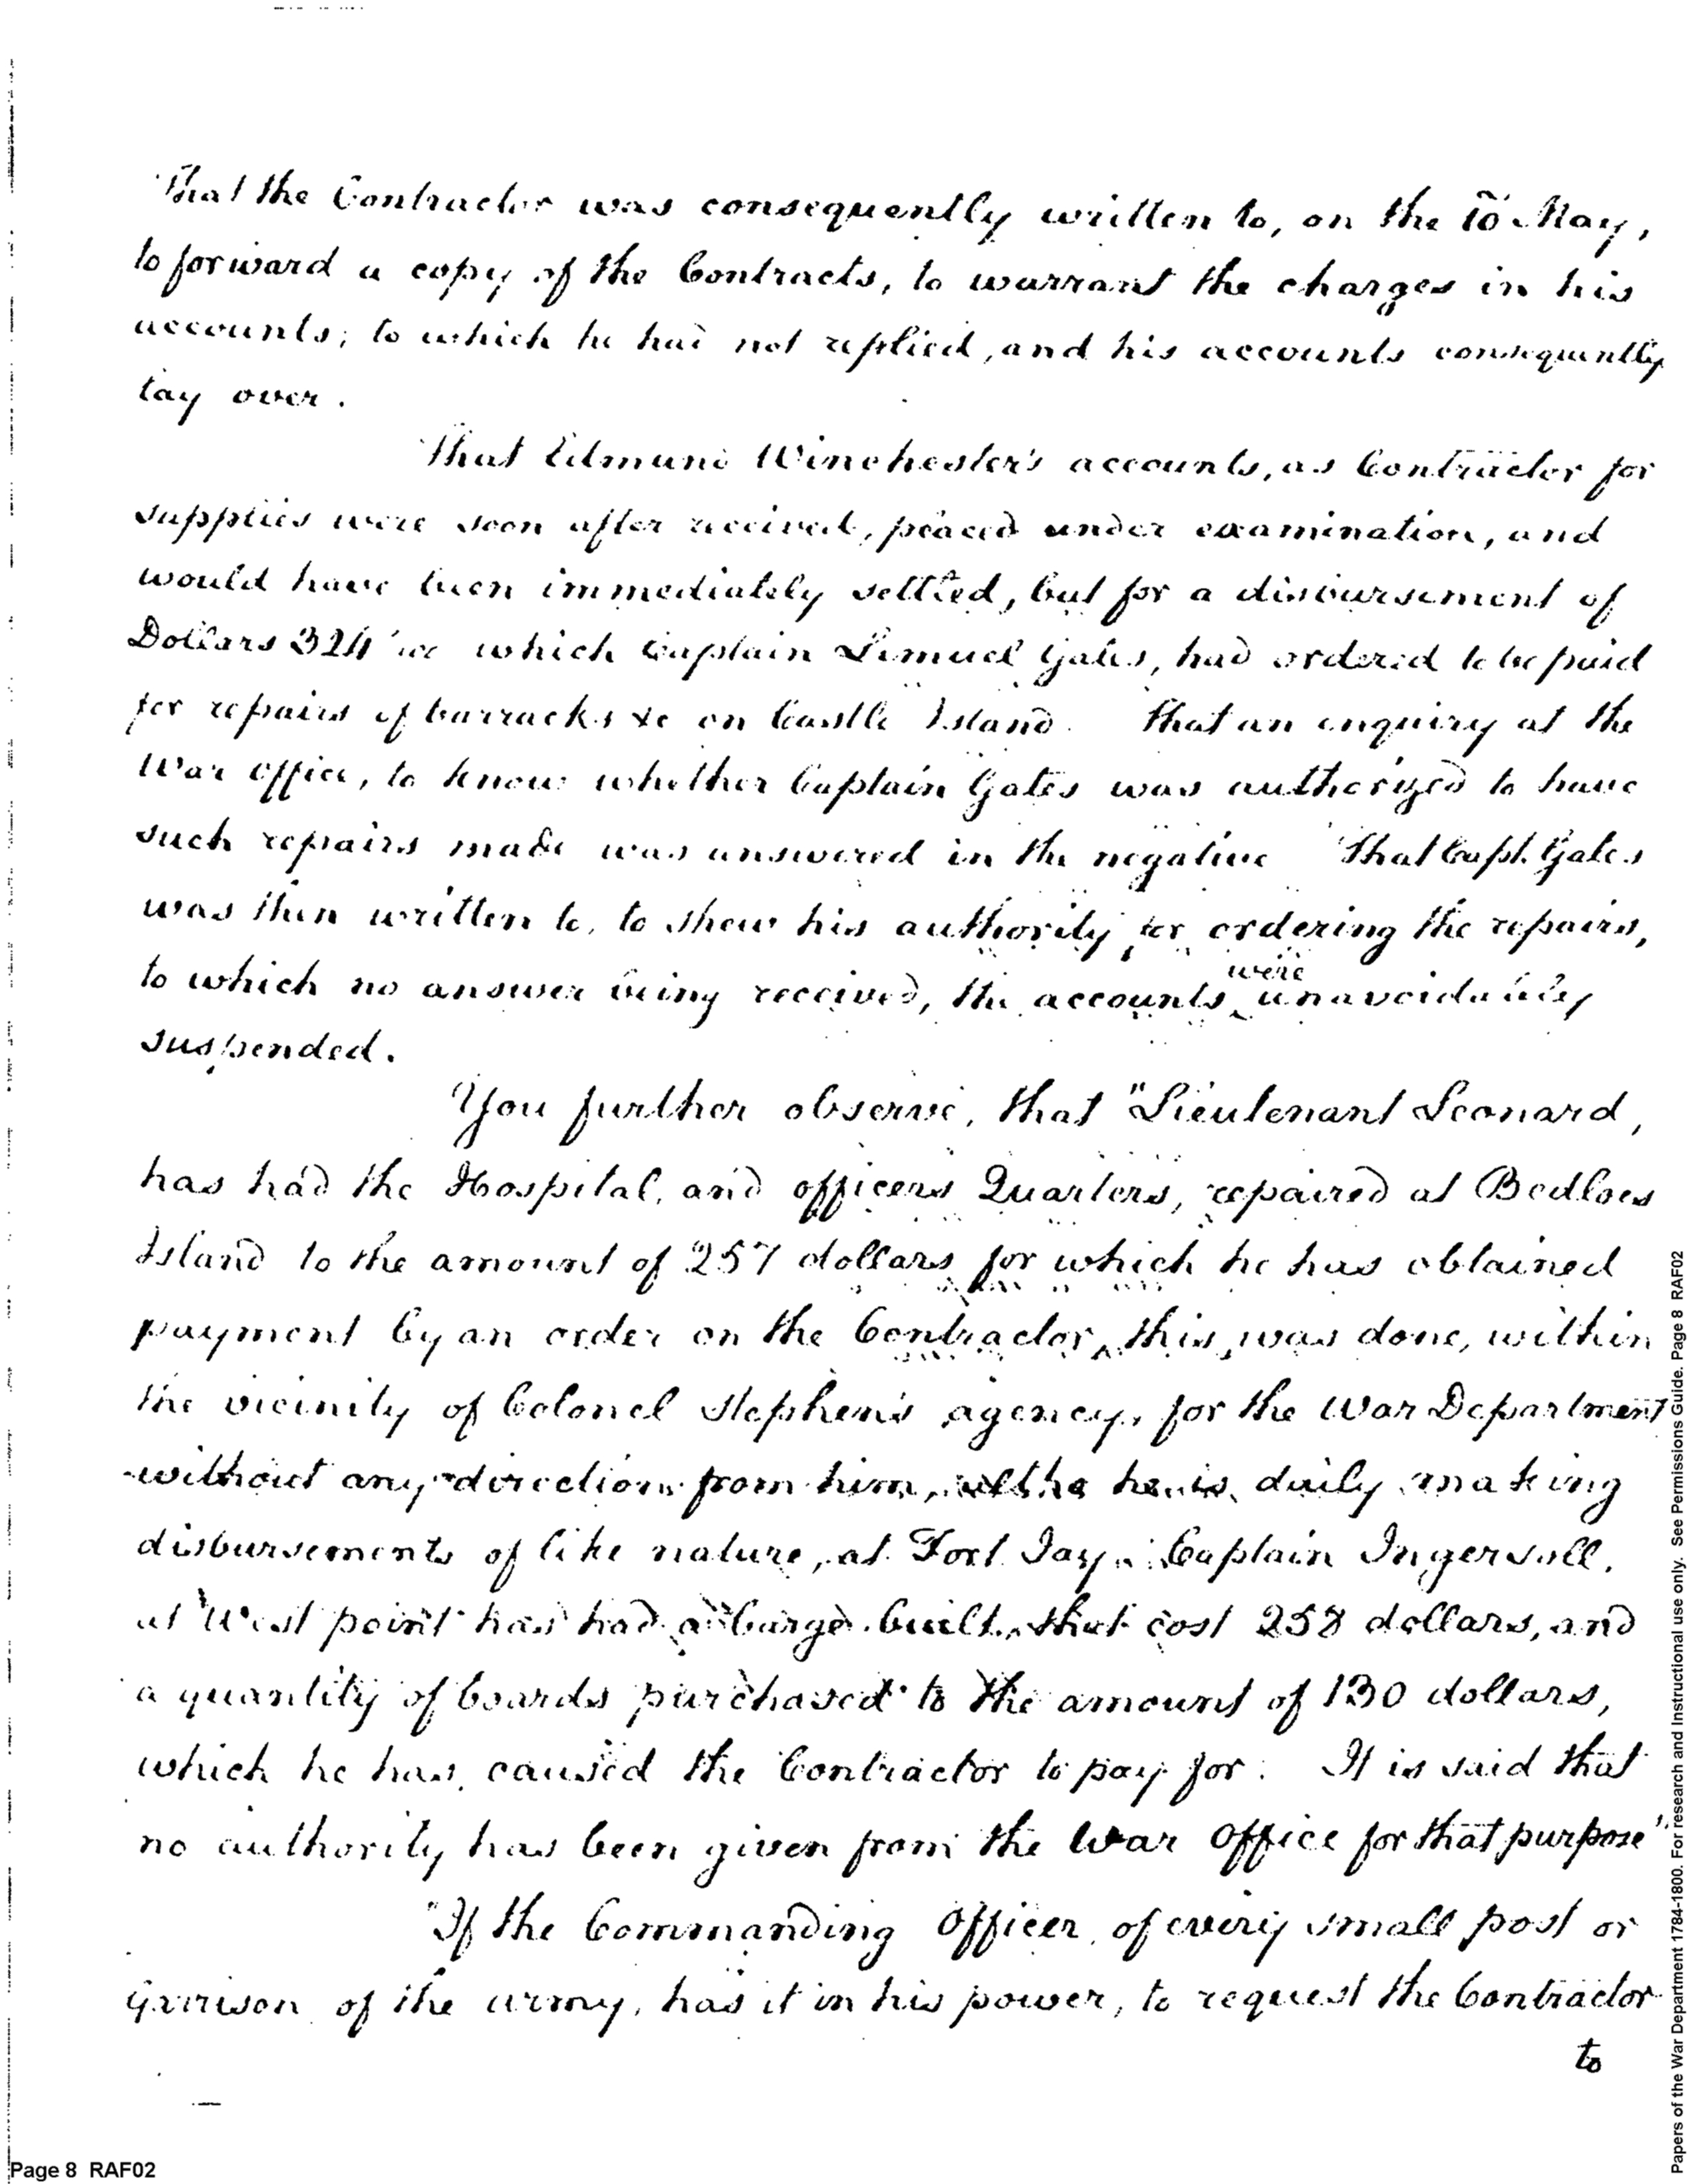 That the Contractor was consequently written to, on the 10 May,
to forward a copy of the Contracts, to warrant the charges in his
accounts; to which he had not replied, and his accounts consequently
lay over.
That Edmund Winchester's accounts, as Contractor for
supplies were soon after received, placed under examination, and
would have been immediately settled, but for a disbursement of
Dollars 324 which Captain Lemuel Gates, had ordered to be paid
for repairs of barracks &c on Castle Island. That an enquiry at the
War office, to know whether Captain Gates was authorized to have
such repairs made was answered in the negative That Capt. Gates
was then written to, to shew his authority for ordering the repairs,
to which no answer being received, the accounts were unavoidably
suspended.
You further observe, that "Lieutenant Leonard,
has had the Hospital, and officers Quarters, repaired at Bedloes
Island to the amount of 257 dollars for which he has obtained
payment by an order on the Contractor, this, was done, within
the vicinity of Colonel Stephen's agency, for the War Department
without any directions from him, altho he is daily making
disbursements of like nature, at Fort Jay. Captain Ingersoll,
at West point has had a barge built, that cost 258 dollars, and
a quantity of boards purchased to the amount of 130 dollars,
which he has caused the Contractor to pay for. It is said that
no authority has been given from the War office for that purpose"
"If the Commanding Officer of every small post or
garrison of the army, has it in his power, to request the Contractor
to
Page 8 RAF02
Papers of the War Department 1784-1800. For research and Instructional use only. See Permissions Guide. Page 8 RAF02